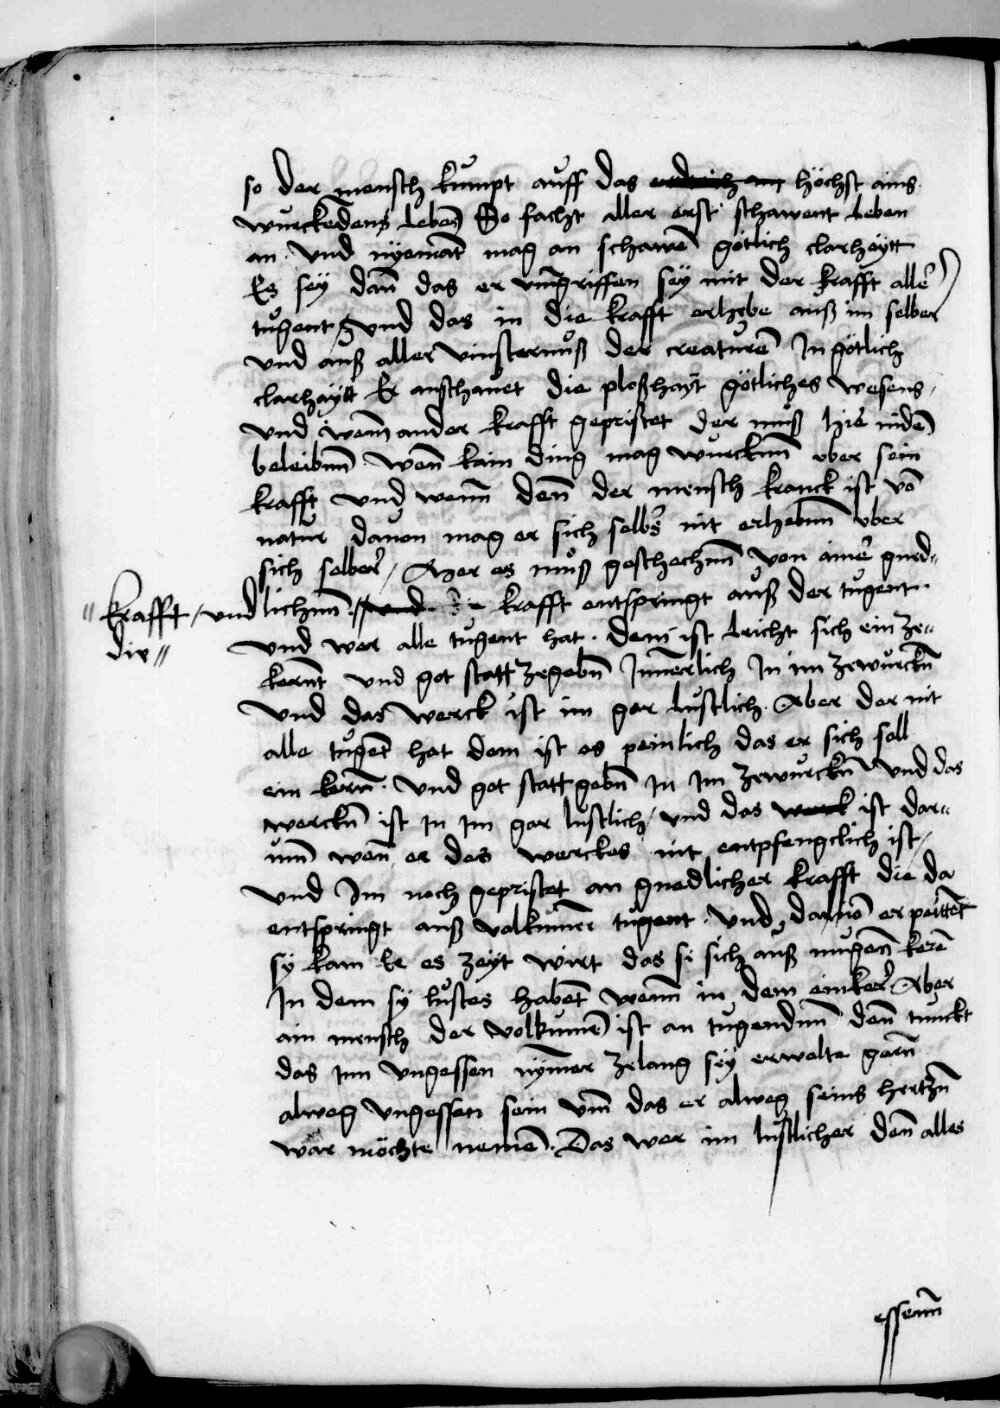 so der mensch kumpt auff das höchst ains
wurckedens lebens So facht aller erst schawent leben
an . Und nyemat mag an schawen götlich clarhaytt
Es sey dañ das er umgriffen sey mit der krafft aller
tugent / und das in die krafft erhebe auß im selber
und auß aller vinsternuß der creaturē In götlich
clarhaytt Er anschauet die ploßhayt götliches wesens .
Und wem ander krafft gepristet der muß hie niden
beleibnn . Wen kain ding mag wurcknn uber sein
krafft Und wenn denn der mensch kranck ist vō
natur davon mag er sich selbs nit erhebnn uber
sich selber / Aber es muß geschechnn von ainer gned„
lichnn krafft entspringt auß der tugent
"krafft / und
die "
Und wer alle tugent hat . Dem ist leicht sich ein ze„
kernt und got statt zegebn Innerlich In im zewurckn
Und das werck ist im gar lustlich . Aber der nit
alle tuget hat dem ist es peinlich das er sich soll
ein kern . Und got statt gebn In Im zewurckn und das
werckn ist in im gar lustlich / und das werck ist dar„
um wen er des werckes nit entpfengclich ist /
Und Im noch gepristet an gnedlicher krafft die da
entspringt auß volkumer tugent . Und davō er peittet
sy kam Ee es zeyt wirt das si sich auß mugenn kerē
In dem sy lustes habet wenn in dem einker . Aber
ain mensch der volkumē ist an tugendnn den tunckt
das im ungessen nymer zelang sey er wolte gern
alweg ungessen sein um das er alweg seins hertzn
war möchte nemē . Das wer im lustlicher deñ alles
essenn